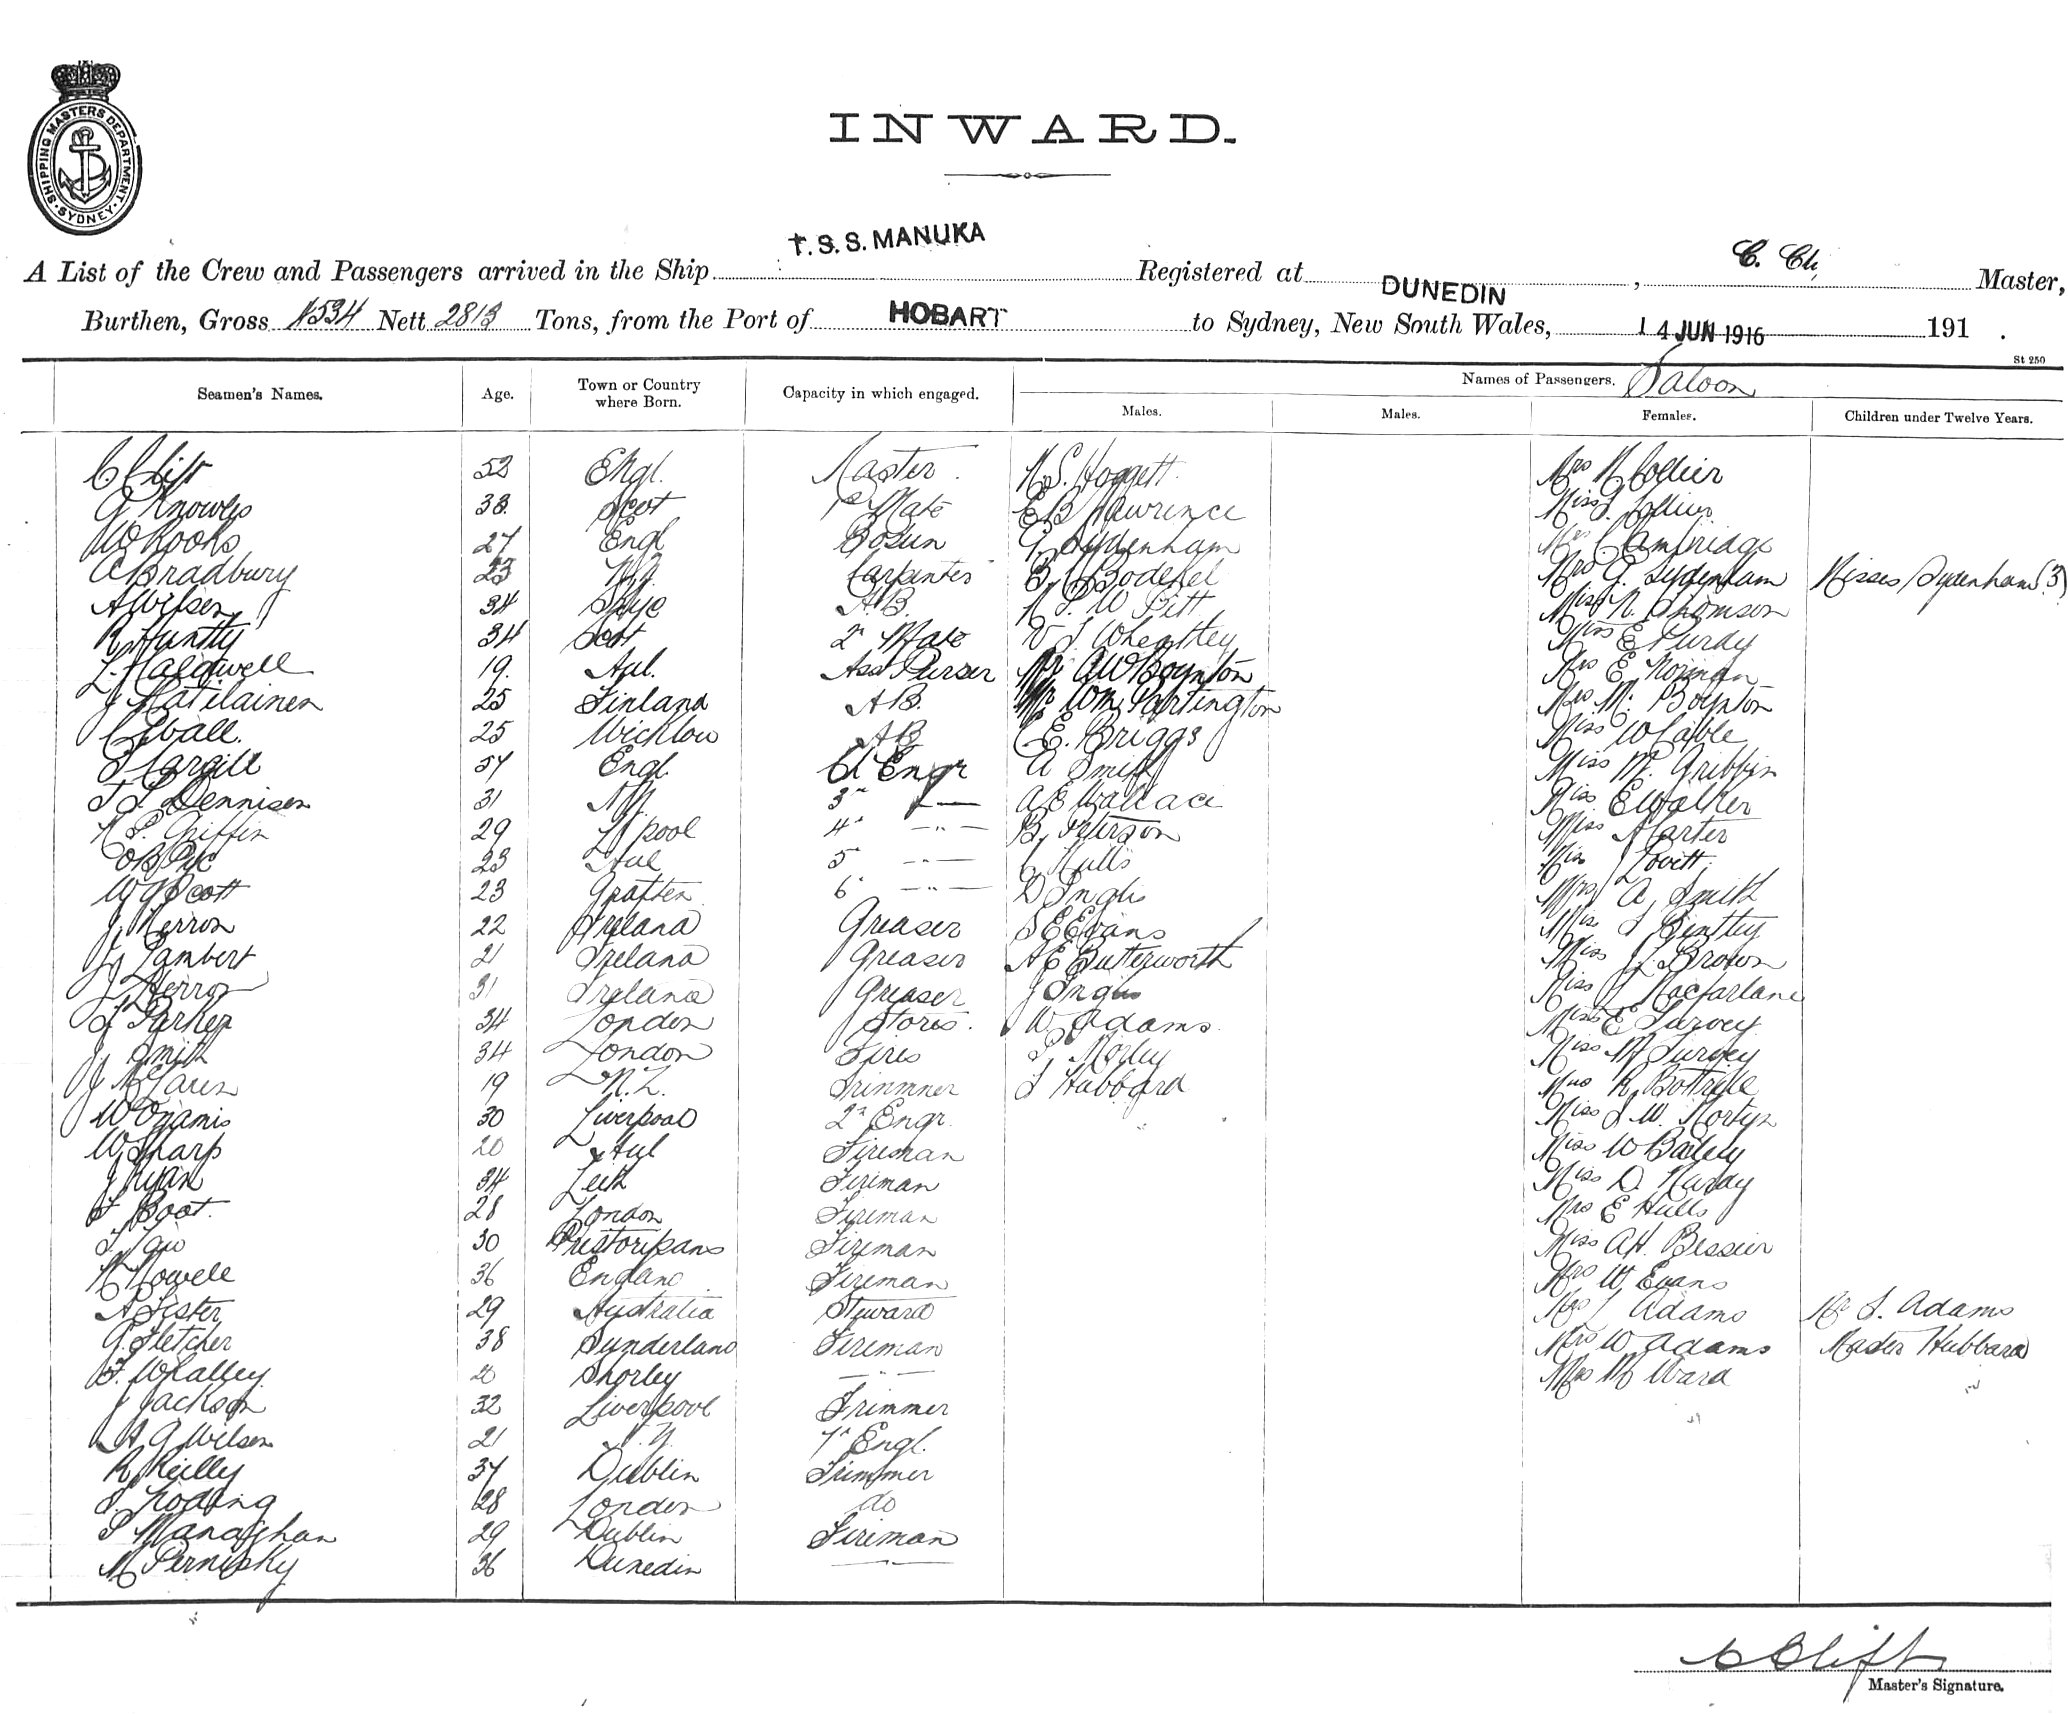 SHIPPING MASTERS DEPARTMENT. SYDNEY.
INWARD.
A List of the Crew and Passengers arrived in the Ship T.S.S. MANUKA Registered at DUNEDIN, C. Cli Master,
Burthen, Gross 4534 Nett 2813 Tons, from the Port of HOBART to Sydney, New South Wales, 14 JUN 1916 191 .
St 250
Seamen's Names. Age. Town or Country where Born. Capacity in which engaged. Names of Passengers. Saloon
Males. Males. Females. Children under Twelve Years.
C Clift 52 Engl. Master N S. Hoggett Mrs N Collier
A Knowles 38 Scot 1st Mate E B Lawrence Miss Collier
W Rooks 27 Engl Bosun G. Sydenham Mrs C Cambridge
A Bradbury 23 N.Z. Carpenter B. C Bodekel Mrs G. Sydenham Misses Sydenham (3)
A Wilson 34 Skye A.B. R P. W Pitt Miss N Thomson
R Huntly 34 Scot 2n Mate V J Wheatley Miss E Purdy
L. Caldwell 19. Aul. Asst Purser Mr A W Boynton Mrs E Norman
J Matilainen 25 Finland A.B. Mr Wm Partington Mrs M. Boynton
C Wall. 25 Wicklow A B C E. Briggs Miss W Cable
Cargill 57 Engl. Ch Engr A Smith Miss M. Gribbin
J. S. Dennison 31 N.Z. 3rd " A E Wallace Miss E Walker
N S. Griffin 29 L'pool 4th " B. Paterson Miss A Carter
O B Pye 23 Aul 5 " C Hulls Miss J Lovitt
W J Scott 23 Grafton 6 " D Inglis Mrs A Smith
J Herron 22 Ireland Greaser S E Evans Miss J Bentley
J Lambert 21 Ireland Greaser A E Butterworth Miss J L. Brown
J Herron 31 Ireland Greaser J Inglis Miss J Macfarlane
J Parker 34 London Stores. W Adams Miss E Turvey
J Smith 34 London Fires P. Morley Miss M Turvey
J McLaren 19 N.Z. Trimmer J Hubbard Mrs R Bottrill
W Adamis 30 Liverpool 2n Engr. Miss J W. Mortyn
W Sharp 20 Aul Fireman Miss W Bailey
J Ryan 34 Leith Fireman Miss D. Hardy
J Boat. 28 London Fireman Mrs E Hulls
30 Prestonpans Fireman Miss A H. Bessier
N Nowell 36 England Fireman Mrs W Evans
A Lister 29 Australia Steward Mrs J Adams Mr J. Adams
G. Fletcher 38 Sunderland Fireman Mrs W Adams Master Hubbard
F. Whalley 20 Chorley " Mrs M Ward
J Jackson 32 Liverpool Trimmer
A G Wilson 21 N.Z. 7th Engl.
R Reilly 37 Dublin Trimmer
28 London do
P Managhan 29 Dublin Fireman
M Pernisky 36 Dunedin "
C Clift
Master's Signature.